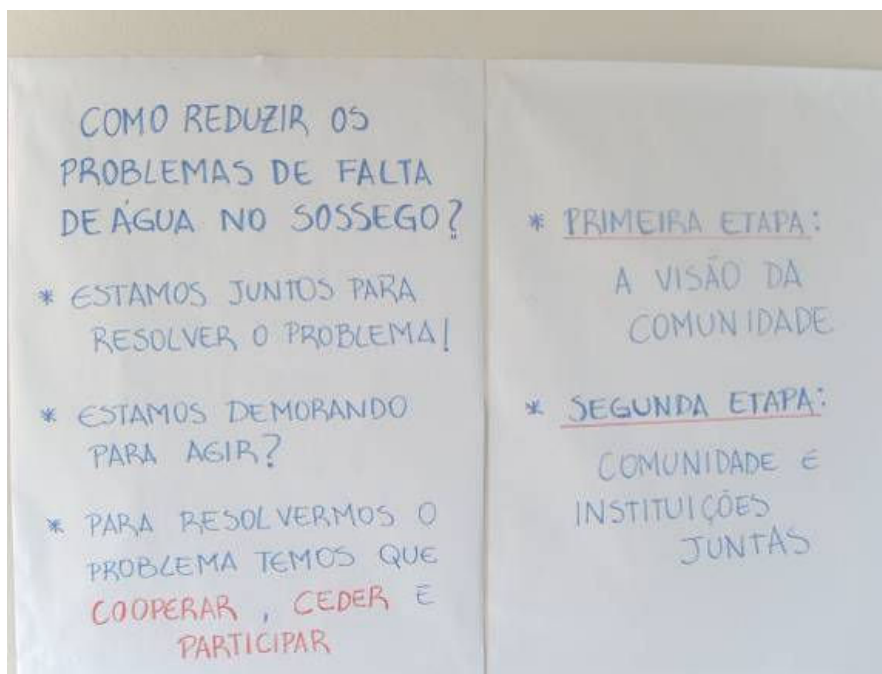 COMO REDUZIR OS
PROBLEMAS DE FALTA
DE ÁGUA NO SOSSEGO?
* ESTAMOS JUNTOS PARA
RESOLVER O PROBLEMA!
* ESTAMOS DEMORANDO
PARA AGIR?
* PARA RESOLVERMOS O
PROBLEMA TEMOS QUE
COOPERAR, CEDER E
PARTICIPAR
* PRIMEIRA ETAPA:
A VISÃO DA
COMUNIDADE
* SEGUNDA ETAPA:
COMUNIDADE E
INSTITUIÇÕES
JUNTAS